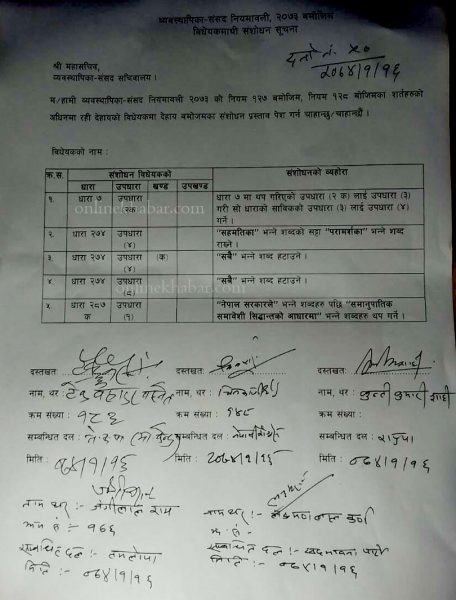 व्यवस्थापिका-संसद नियमावली, २०७३ बमोजिम
विधेयकमाथी संशोधन सूचना
दर्ता नं. ४०
२०७४/१/१६
श्री महासचिव,
व्यवस्थापिका-संसद सचिवालय ।
म/हामी व्यवस्थापिका-संसद नियमावली २०७३ को नियम १२७ बमोजिम, नियम १२८ बोजिमका शर्तहरुको
अधिनमा रही देहायको विधेयकमा देहाय बमोजमका संशोधन प्रस्ताव पेश गर्न चाहान्छु/चाहान्छौं ।
विधेयकको नाम :
क्र.स. संशोधन विधेयकको संशोधनको व्यहोरा
धारा उपधारा खण्ड उपखण्ड
१. धारा ७ उपधारा २क धारा ७ मा थप गरिएको उपधारा (२ क) लाई उपधारा (३)
गरी सो धाराको साविकको उपधारा (३) लाई उपधारा (४)
गर्ने ।
२. धारा २७४ उपधारा (४) "सहमतिका" भन्ने शब्दको सट्टा "परामर्शका" भन्ने शब्द
राख्ने ।
३. धारा २७४ उपधारा (४) (क) "सबै" भन्ने शब्द हटाउने ।
४. धारा २७४ उपधारा (८) "सबै" भन्ने शब्द हटाउने ।
५. धारा २८७ क उपधारा (१) "नेपाल सरकारले" भन्ने शब्दहरु पछि "समानुपातिक
समावेशी सिद्धान्तको आधारमा" भन्ने शब्दहरु थप गर्ने ।
onlinekhabar.com
onlinekhabar.com
दस्तखत: दस्तखत: दस्तखत:
नाम, थर : टेक बहादुर नाम, थर : नाम, थर : कुन्ती कुमारी शाही
क्रम संख्या : १८६ क्रम संख्या : क्रम संख्या :
सम्बन्धित दल : सम्बन्धित दल : सम्बन्धित दल : राप्रपा
मिति : ०७४/१/१६ मिति : २०७४/१/१६ मिति : ०७४/१/१६
नाम थर :- जंगीलाल राय नाम थर :- लक्ष्मण लाल कर्ण
क्रम सं :- १७६ क्रम सं :-
सम्बन्धित दल :- तमलोपा सम्बन्धित दल :- सद्भावना पार्टी
मिति :- ०७४/१/१६ मिति :- ०७४/१/१६